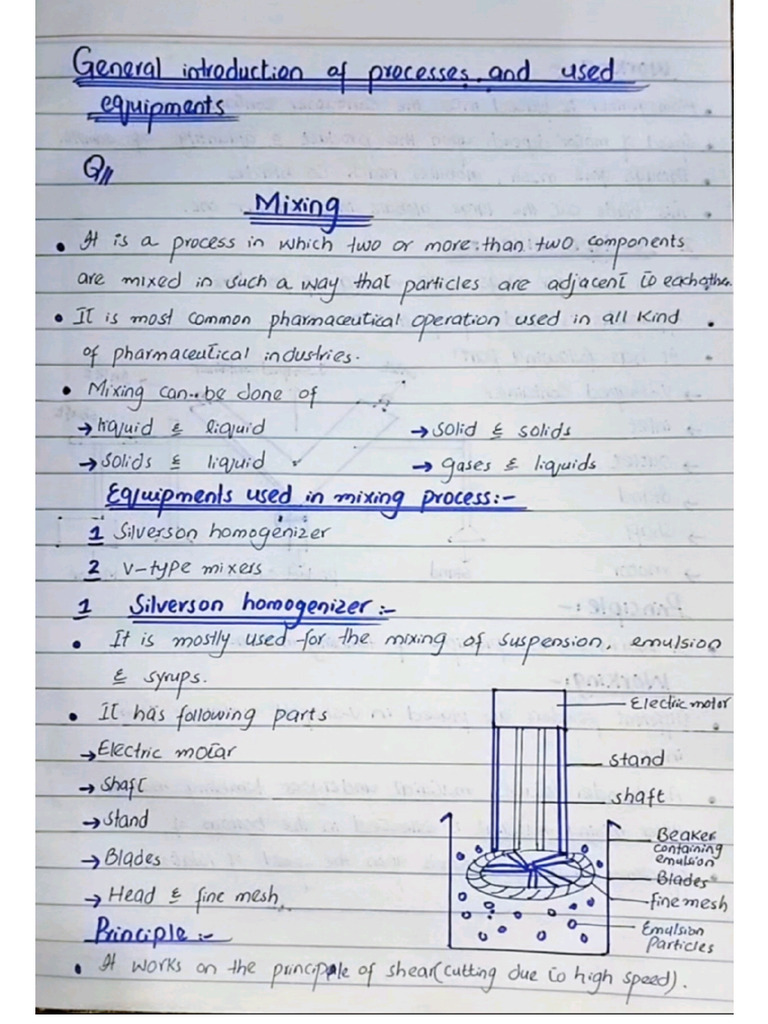 General introduction of processes and used
equipments
Q
Mixing
• It is a process in which two or more than two components
are mixed in such a way that particles are adjacent to eachother.
• It is most common pharmaceutical operation used in all kind
of pharmaceutical industries.
• Mixing can be done of
→ liquid & liquid → solid & solids
→ solids & liquid → gases & liquids
Equipments used in mixing process:-
1 Silverson homogenizer
2 V-type mixers
1 Silverson homogenizer:-
• It is mostly used for the mixing of suspension, emulsion
& syrups.
• It has following parts
→ Electric motar
→ Shaft
→ Stand
→ Blades
→ Head & fine mesh
Electric motor
stand
shaft
Beaker
containing
emulsion
Blades
fine mesh
Emulsion
Particles
Principle:-
• It works on the principle of shear(cutting due to high speed).